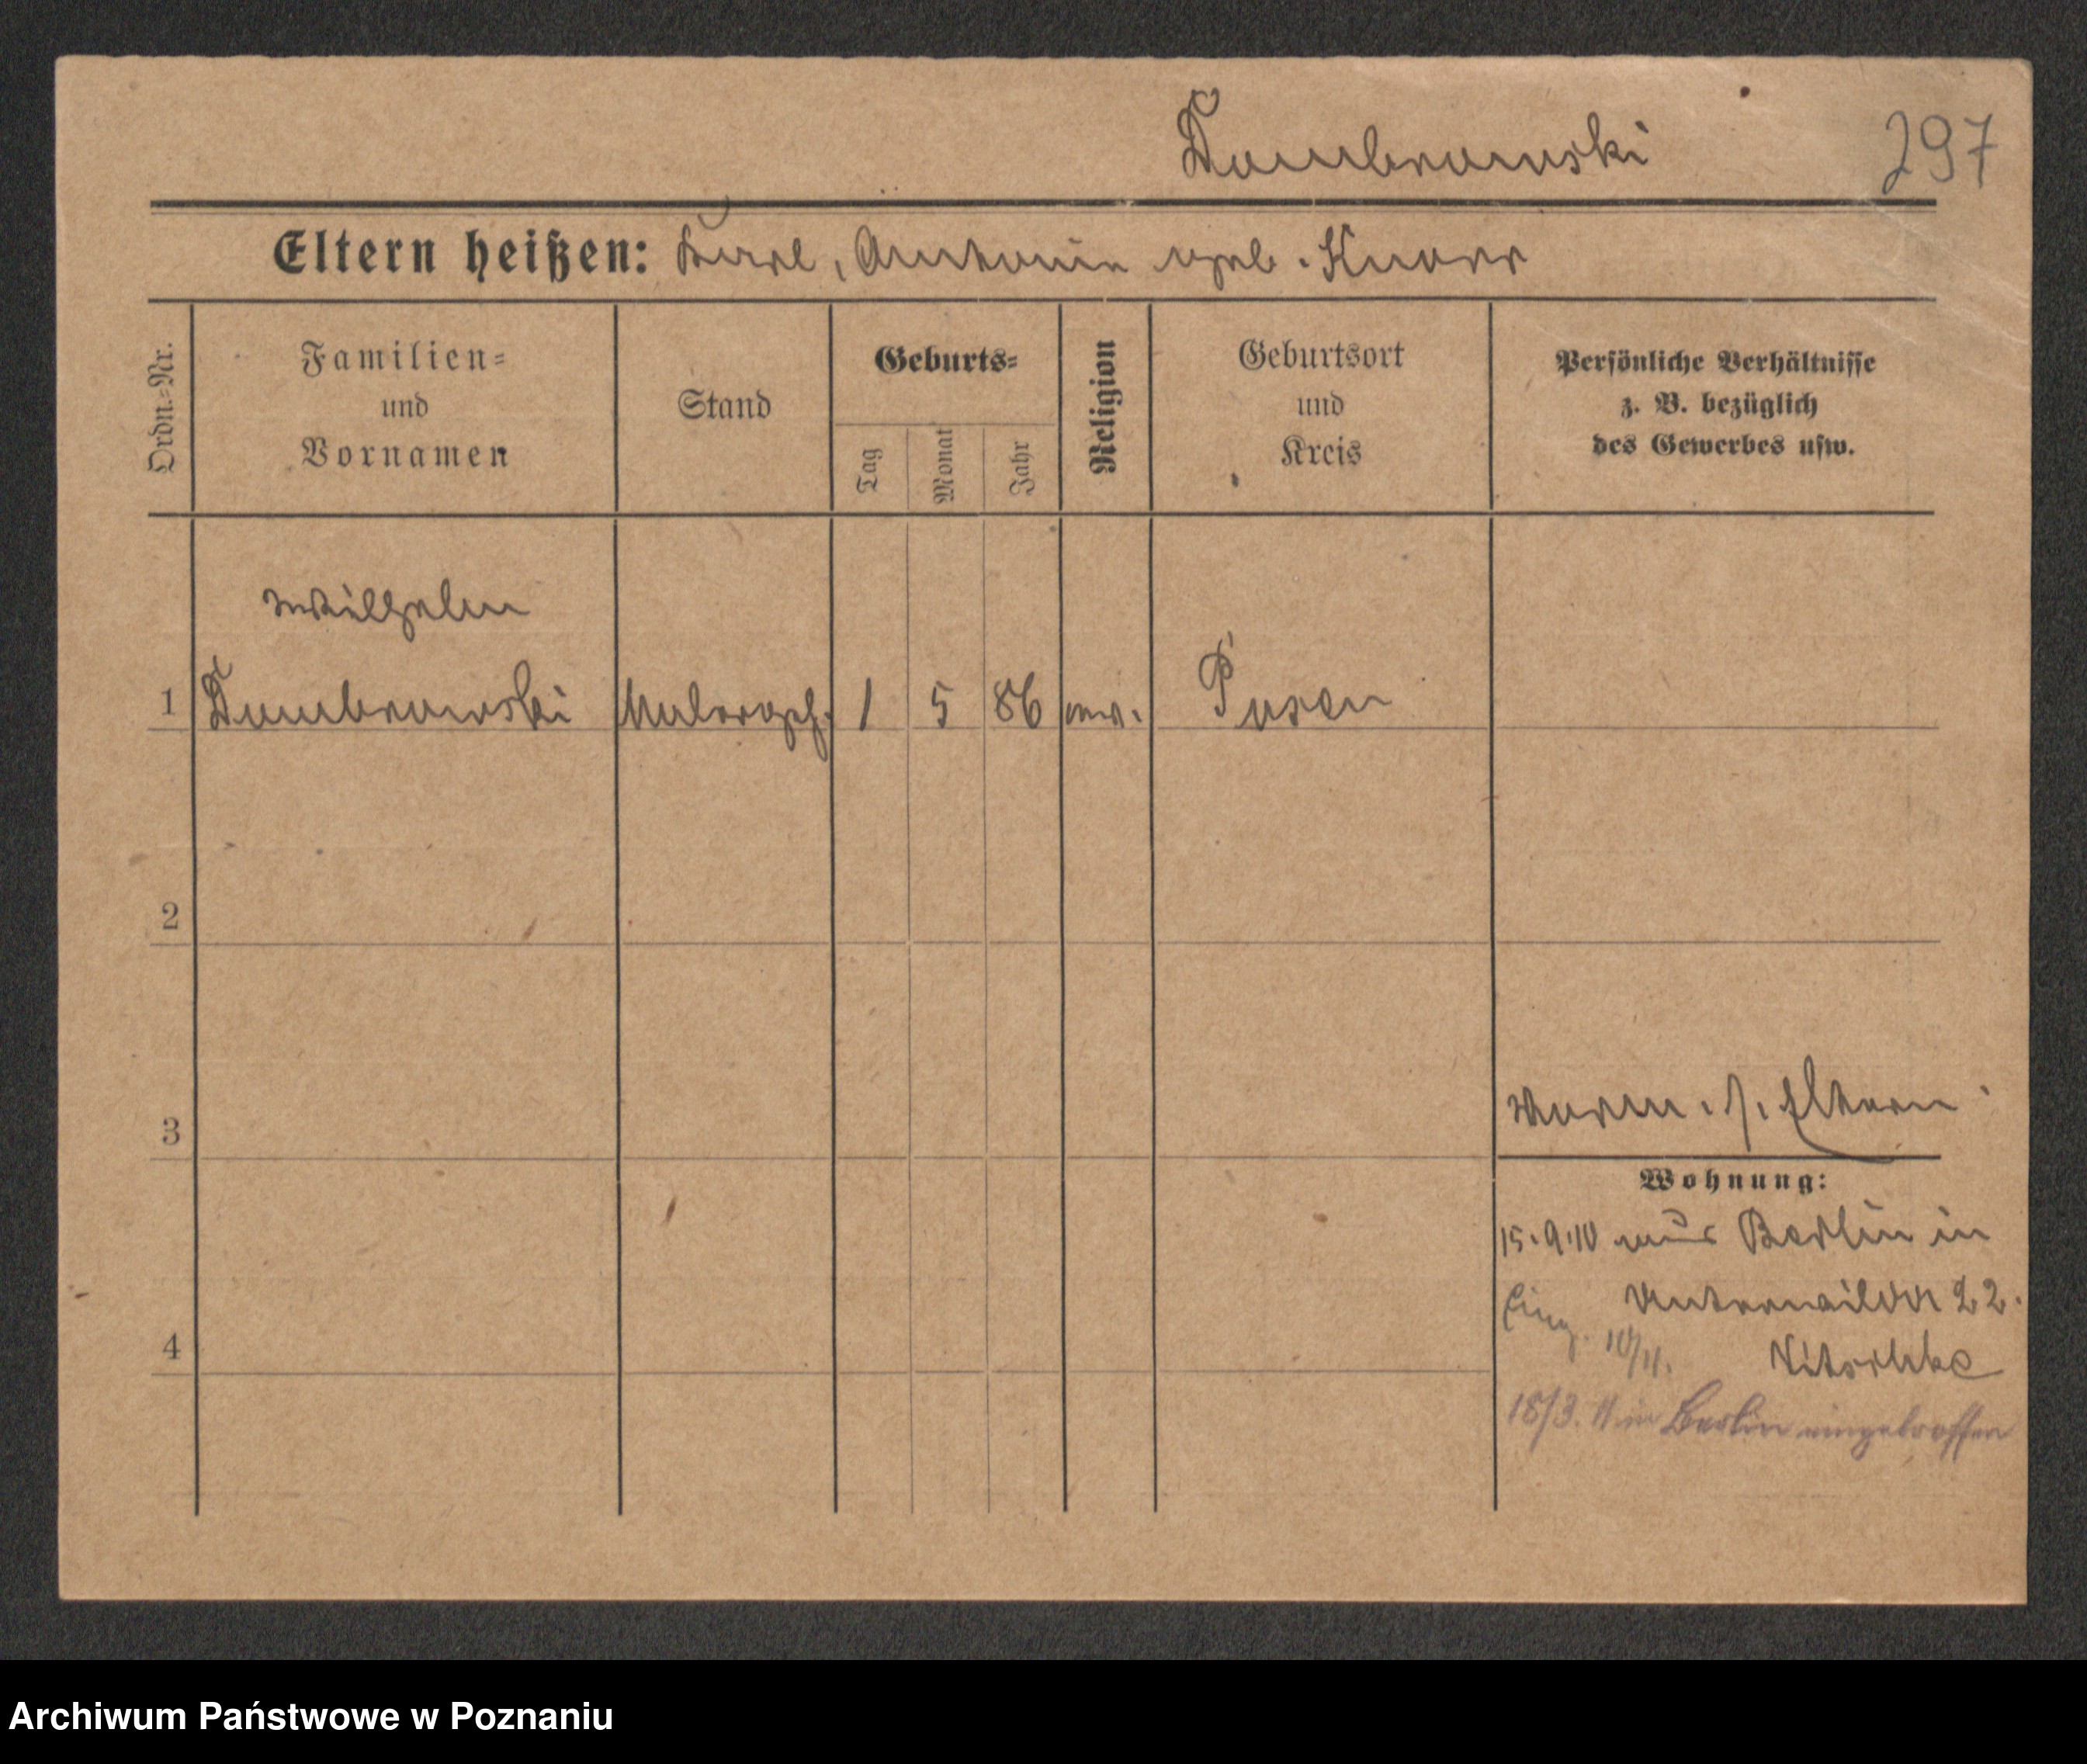 Dombrowski 297
Eltern heißen: Karl, Antonie geb. Knorr
Ordn.-Nr.
Familien-
und
Vornamen
Stand
Geburts-
Tag
Monat
Jahr
Religion
Geburtsort
und
Kreis
Persönliche Verhältnisse
z. B. bezüglich
des Gewerbes usw.
Wilhelm
1 Dombrowski Malergeh. 1 5 86 Posen
2
3
Eltern
Wohnung:
15.9.10 aus Berlin in
22.
4
10/11. Nitschke
18/3. 11 in Berlin eingetroffen
Archiwum Państwowe w Poznaniu